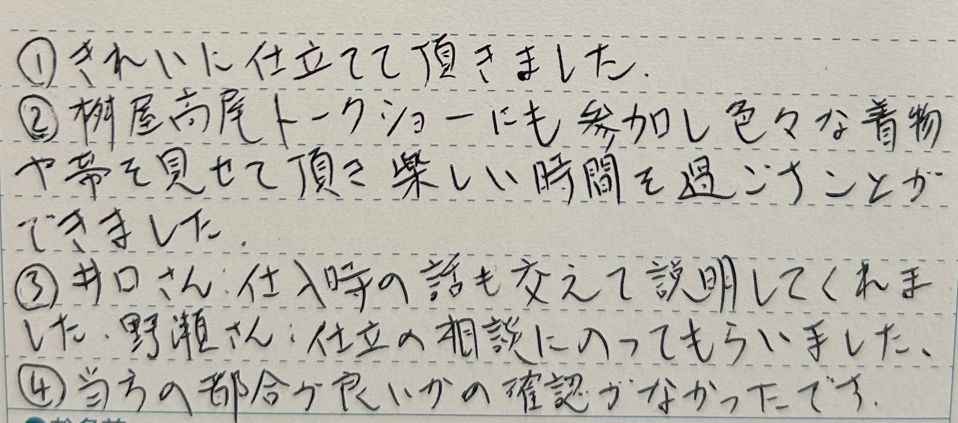 ①きれいに仕立てて頂きました.
②桝屋高尾トークショーにも参加し色々な着物
や帯を見せて頂き楽しい時間を過ごすことが
できました.
③井口さん:仕入時の話も交えて説明してくれま
した.野瀬さん:仕立の相談にのってもらいました、
④当方の都合が良いかの確認がなかったです.